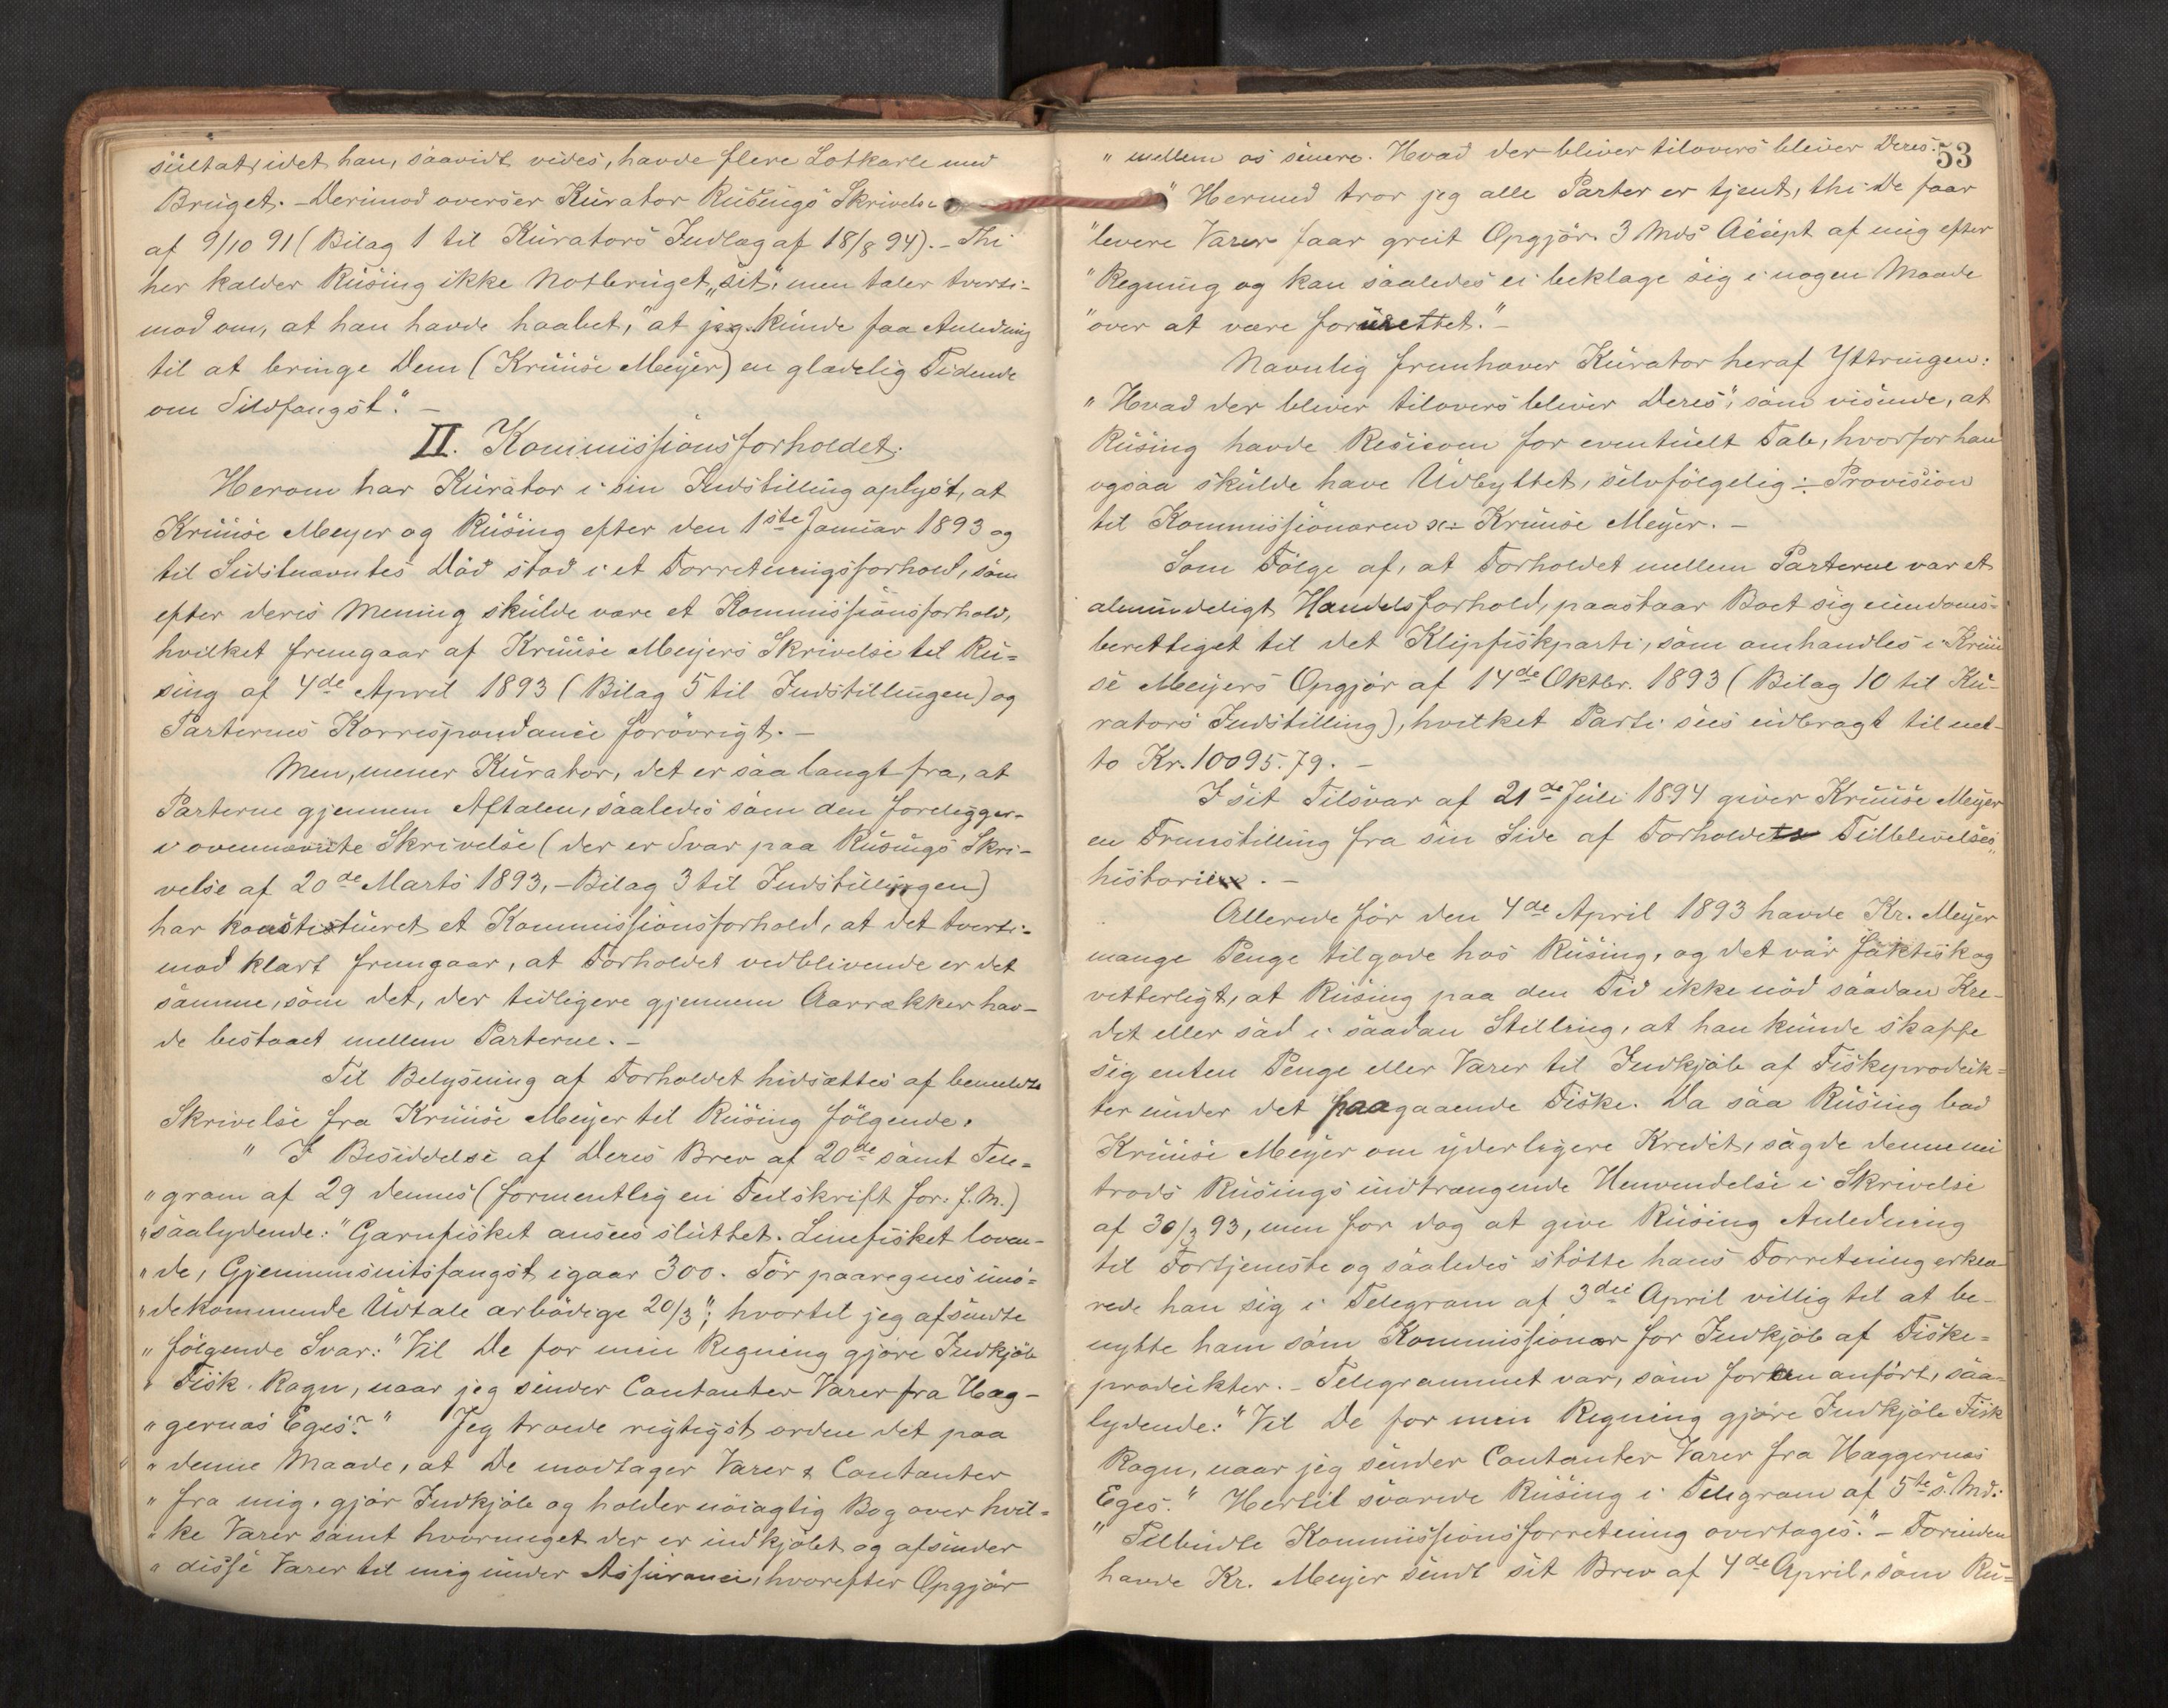 sultat, idet han, saavidt vides, havde flere Lotkarle med
Bruget. – Derimod overser Kurator Rüsings Skrivelse
af 9/10 91 (Bilag 1 til Kurators Indlæg af 18/8 94). – Thi
her kalder Rüsing ikke Notbruget „sit", men taler tverti-
mod om, at han havde haabet, "at jeg kunde faa Anledning
til at bringe Dem (Kruuse Meyer) en glædelig Tidende
om Sildfangst." –
II. Kommissionsforholdet.
Herom har Kurator i sin Indstilling oplyst, at
Kruuse Meyer og Rüsing efter den 1ste Januar 1893 og
til Sidstnævntes Død stod i et Forretningsforhold, som
efter deres Mening skulde være et Kommissionsforhold,
hvilket fremgaar af Kruuse Meyers Skrivelse til Rü-
sing af 4de April 1893 (Bilag 5 til Indstillingen) og
Parternes Korrespondance forøvrigt. –
Men, mener Kurator, det er saa langt fra, at
Parterne gjennem Aftalen, saaledes som den foreligger
i ovennævnte Skrivelse (der er Svar paa Rüsings Skri-
velse af 20de Marts 1893, – Bilag 3 til Indstillingen)
har konstitueret et Kommissionsforhold, at det tverti-
mod klart fremgaar, at Forholdet vedblivende er det
samme, som det, der tidligere gjennem Aarrækker hav-
de bestaaet mellem Parterne. –
Til Belysning af Forholdet hidsættes af bemeldte
Skrivelse fra Kruuse Meyer til Rüsing følgende:
" I Besiddelse af Deres Brev af 20de samt Tele-
" gram af 29 dennes (formentlig en Feilskrift for: f. M.)
" saalydende: "Garnfisket ansees sluttet. Linefisket loven-
" de, Gjennemsnitsfangst igaar 300. Tør paaregnes
" dekommende Udtale ærbødige 20/3", hvortil jeg afsendte
" følgende Svar: "Vil De for min Regning gjøre Indkjøb
" Fisk. Rogn, naar jeg sender Contanter Varer fra Hag-
" gernæs Eges?" Jeg troede rigtigst ordne det paa
" denne Maade, at De modtager Varer & Contanter
" fra mig, gjør Indkjøb og holder nøiagtig Bog over hvil-
" ke Varer samt hvormeget der er indkjøbt og afsender
" disse Varer til mig under Assurance, hvorefter Opgjør
53
" mellem os senere. Hvad der bliver tilovers bliver Deres.
" Hermed tror jeg alle Parter er tjent, thi De faar
" levere Varer faar greit Opgjør. 3 Mds Accept af mig efter
" Regning og kan saaledes ei beklage sig i nogen Maade
" over at være forurettet." –
Navnlig fremhæver Kurator heraf Yttringen:
" Hvad der bliver tilovers bliver Deres", som visende, at
Rüsing havde Resicoen for eventuelt Tab, hvorfor han
ogsaa skulde have Udbyttet, selvfølgelig ÷ Provision
til Kommissionæren ɔ: Kruuse Meyer. –
Som Følge af, at Forholdet mellem Parterne var et
almindeligt Handelsforhold, paastaar Boet sig eiendoms-
berettiget til det Klipfiskparti, som omhandles i Kruu
se Meyers Opgjør af 14de Oktbr. 1893 (Bilag 10 til Ku-
rators Indstilling), hvilket Parti sees udbragt til net-
to Kr. 10095.79. –
I sit Tilsvar af 21de Juli 1894 giver Kruuse Meyer
en Fremstilling fra sin Side af Forholdets Tilblivelses-
historie. –
Allerede før den 4de April 1893 havde Kr. Meyer
mange Penge tilgode hos Rüsing, og det var faktisk og
vitterligt, at Rüsing paa den Tid ikke nød saadan Kre-
dit eller sad i saadan Stilling, at han kunde skaffe
sig enten Penge eller Varer til Indkjøb af Fiskeproduk-
ter under det paagaaende Fiske. Da saa Rüsing bad
Kruuse Meyer om yderligere Kredit, sagde denne nei
trods Rüsings indtrængende Henvendelse i Skrivelse
af 30/3 93, men for dog at give Rüsing Anledning
til Fortjeneste og saaledes støtte hans Forretning erklæ-
rede han sig i Telegram af 3die April villig til at be-
nytte ham som Kommissionær for Indkjøb af Fiske-
produkter. – Telegrammet var, som foran anført, saa-
lydende: "Vil De for min Regning gjøre Indkjøb Fisk
Rogn, naar jeg sender Contanter Varer fra Haggernæs
Eges." Hertil svarede Rüsing i Telegram af 5te s. Md:
" Tilbudte Kommissionsforretning overtages." – Forinden
havde Kr. Meyer sendt sit Brev af 4de April, som Rü-